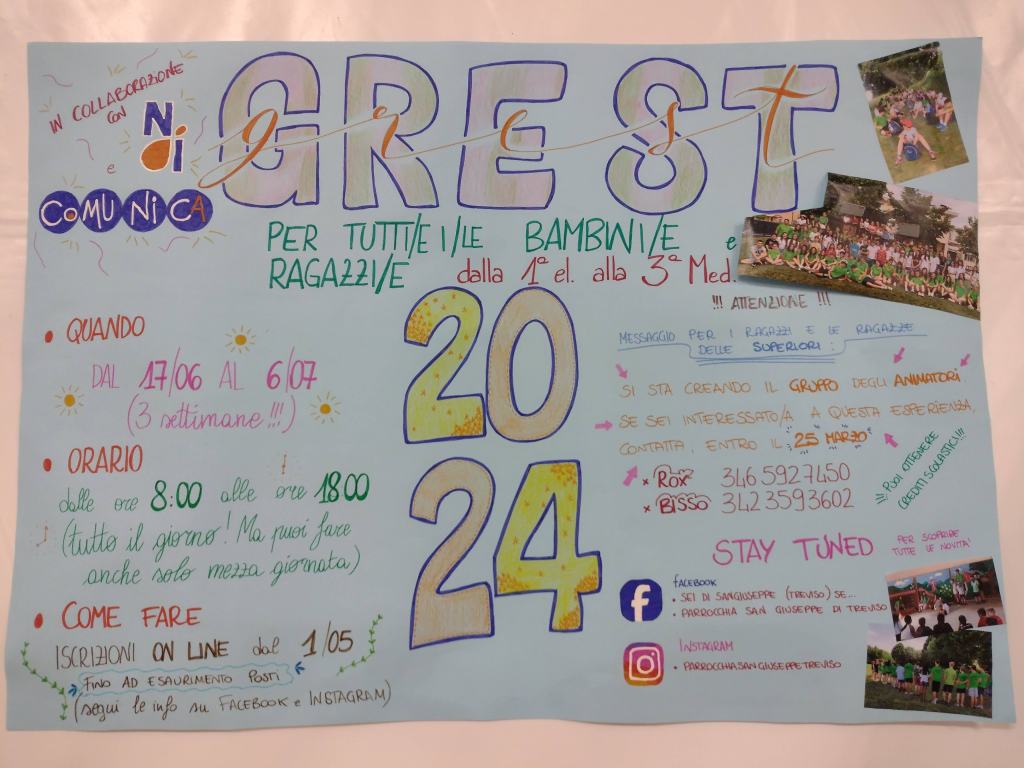 IN COLLABORAZIONE
CON
NOI
e
COMUNICA
GREST
grest
PER TUTTI/E I/LE BAMBINI/E e
RAGAZZI/E dalla 1ª el. alla 3ª Med.
2024
• QUANDO
DAL 17/06 AL 6/07
(3 settimane!!!)
• ORARIO
dalle ore 8:00 alle ore 18:00
(tutto il giorno! Ma puoi fare
anche solo mezza giornata)
• COME FARE
ISCRIZIONI ON LINE dal 1/05
FINO AD ESAURIMENTO POSTI
(segui le info su FACEBOOK e INSTAGRAM)
!!! ATTENZIONE !!!
MESSAGGIO PER I RAGAZZI E LE RAGAZZE
DELLE SUPERIORI:
SI STA CREANDO IL GRUPPO DEGLI ANIMATORI
SE SEI INTERESSATO/A A QUESTA ESPERIENZA,
CONTATTA, ENTRO IL 25 MARZO
× ROX 346 5927450
× BISSO 342 3593602
!!! PUOI OTTENERE
CREDITI SCOLASTICI!!!
STAY TUNED
PER SCOPRIRE
TUTTE LE NOVITA'
FACEBOOK
• SEI DI SANGIUSEPPE (TREVISO) SE...
• PARROCCHIA SAN GIUSEPPE DI TREVISO
INSTAGRAM
• PARROCCHIA.SANGIUSEPPETREVISO